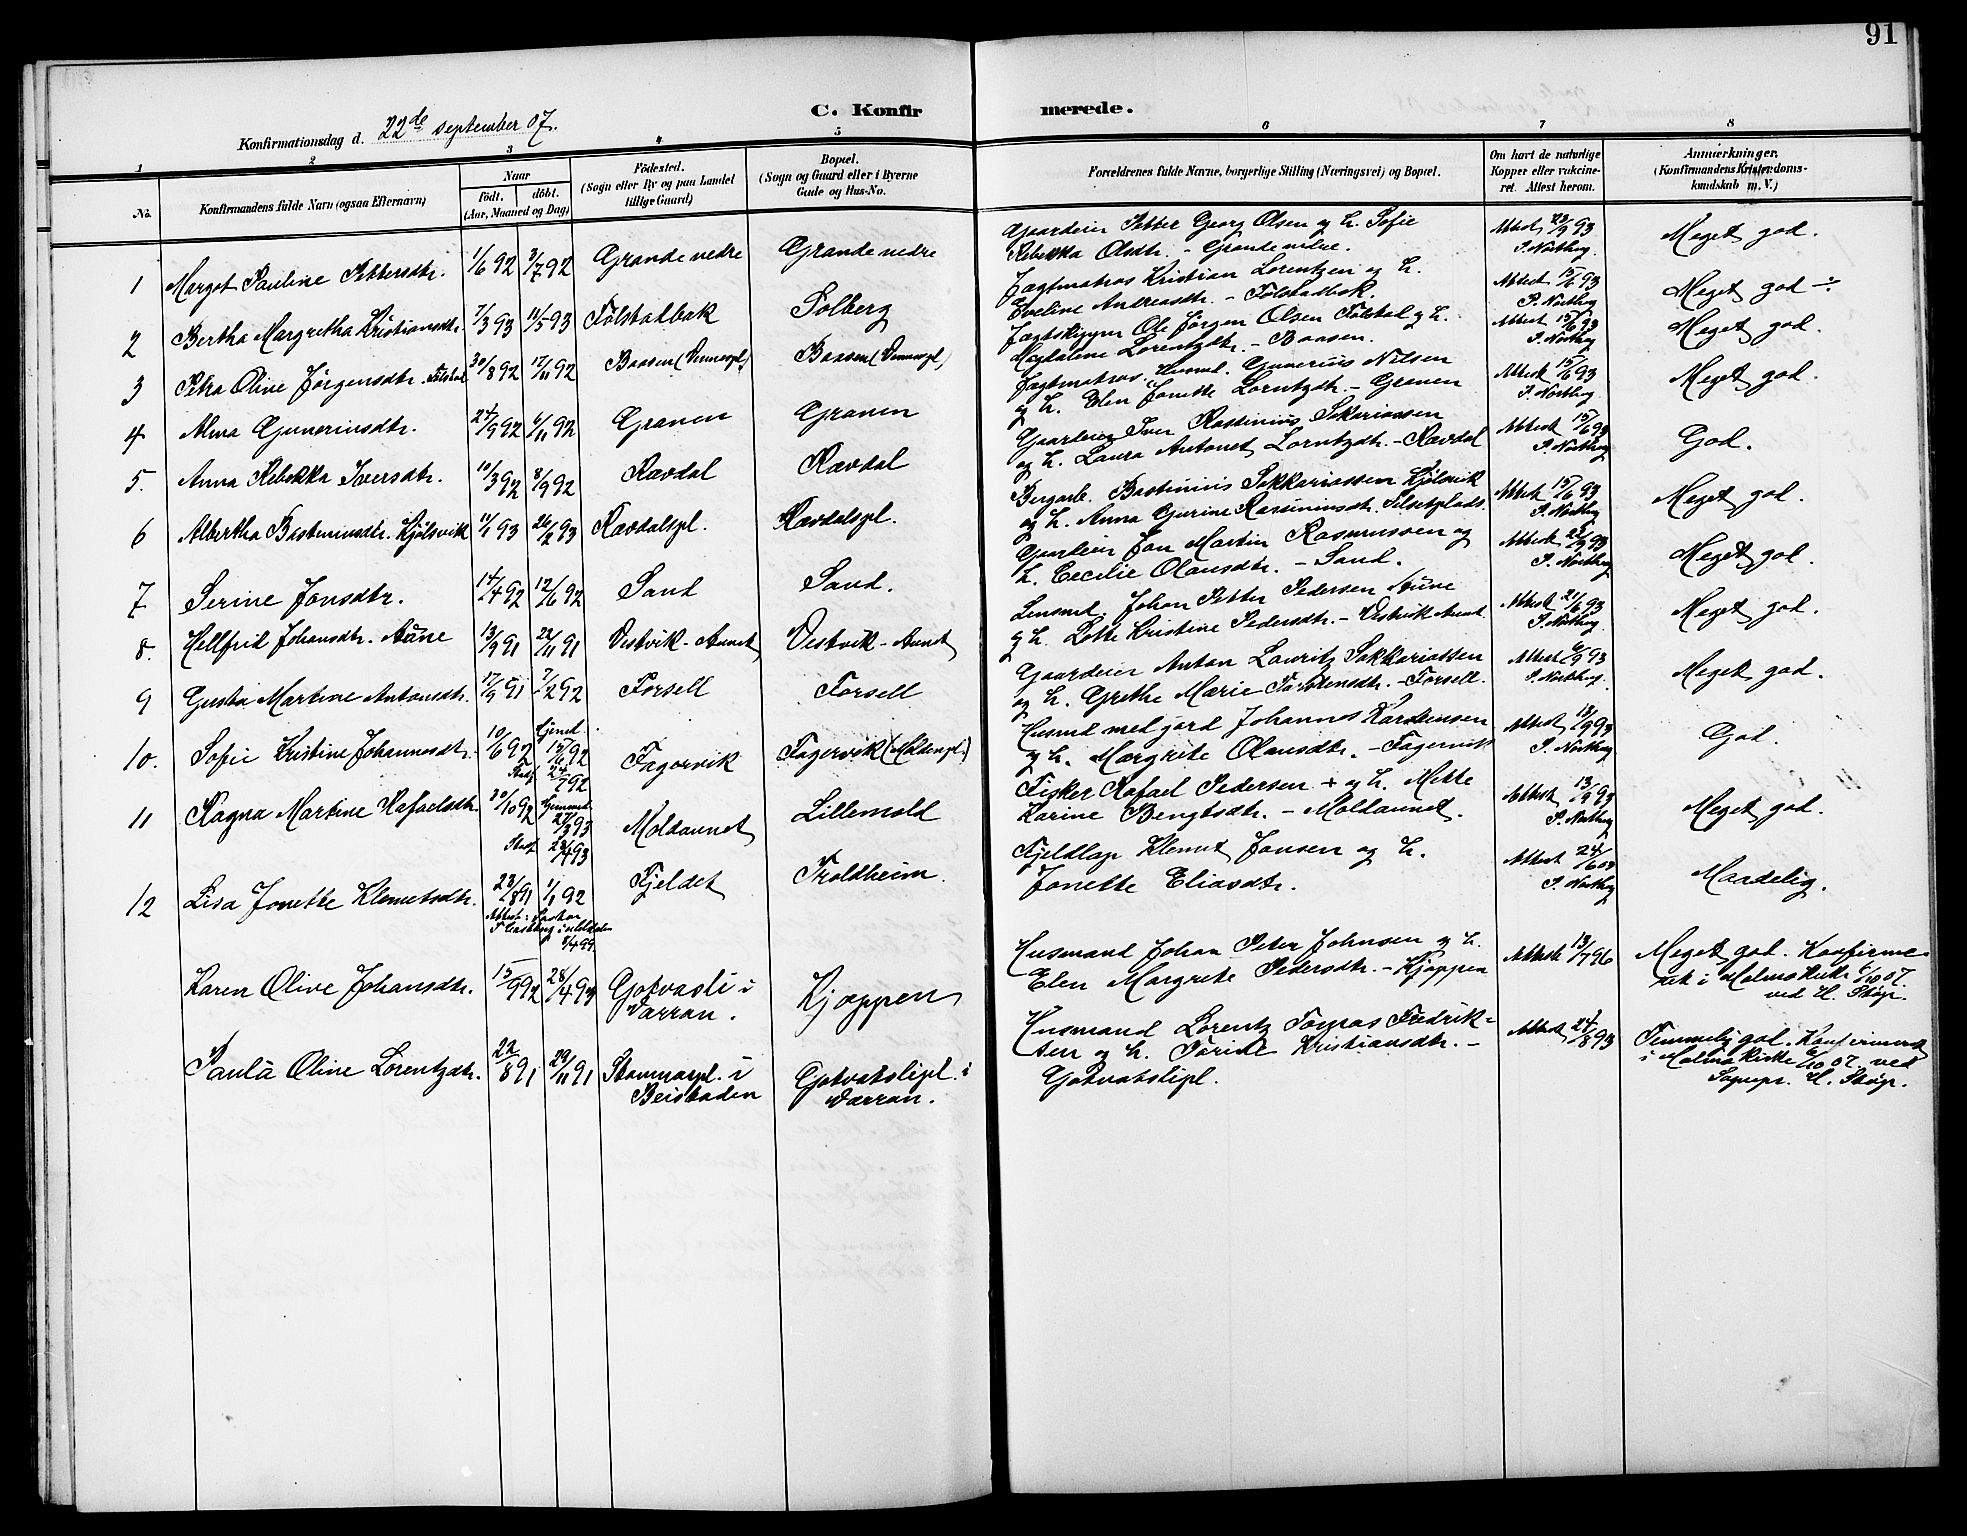 91
C. Konfirmerede.
Konfirmationsdag d. 22de september 07.
1 2 3 4 5 6 7 8
No.
Konfirmandens fulde Navn (ogsaa Efternavn)
Naar
født. døbt.
(Aar, Maaned og Dag)
Fødested.
(Sogn eller By og paa Landet
tillige Gaard)
Bopæl.
(Sogn og Gaard eller i Byerne
Gade og Hus-No.
Forældrenes fulde Navne, borgerlige Stilling (Næringsvei) og Bopæl.
Om havt de naturlige
Kopper eller vakcine-
ret. Attest herom.
Anmærkninger.
(Konfirmandens Kristendoms-
kundskab m. V.)
1 Margot Pauline Pettersdtr. 1/6 92 3/7 92 Grande nedre Grande nedre
Gaardeier Petter Georg Olsen og h. Sofie
Rebekka Olsdtr. - Grande nedre.
Attest 23/9 93 Meget god.
2 Bertha Margretha Kristiansdtr. 7/3 93 11/5 93 Følstadbak Solberg
Jægtmatros Kristian Lorentzen og h.
Eveline Andreasdtr. - Følstadbak.
Attest 15/6 93 Meget god ÷
3 Petra Olive Jørgensdtr. Følstad 30/8 92 17/11 92 Baasen
Jægtskipper Ole Jørgen Olsen Følstad og h.
Magdalene Lorentzdtr. - Baasen.
Attest 15/6 93 Meget god.
4 Alma Guneriusdtr. 24/9 92 6/11 92 Granen Granen
Jægtmatros, Husmd. Gunerius Nilsen
og h. Elen Jonette Lorntzdtr. - Granen
Attest 15/6 93 Meget god.
5. Anna Rebekka Iversdtr. 10/3 92 8/9 92 Rævdal Rævdal
Gaardeier Iver Rastinius Sakariassen
og h. Laura Antonet Lorntzdtr. - Rævdal
Attest 15/6 93 God.
6 Albertha Basteniusdtr. Kjølsvik 11/1 93 26/2 93 Rævdalspl. Rævdalspl.
Bergarb. Bastinius Sakkariassen Kjølsvik
og h. Anna Gurine Rasmusdtr. Selsetplads.
Attest 15/6 93 Meget god.
7 Serine Jonsdtr. 14/4 92 12/6 92 Sand Sand.
Gaardeier Jon Martin Rasmussen og
h. Cecilie Olausdtr. - Sand.
Attest Meget god.
8. Hellfrid Johansdtr. Aune 13/9 91 22/11 91 Vestvik-Aunet Vestvik-Aunet
Lensmd. Johan Petter Pedersen Aune
og h. Lotte Kristine Pedersdtr. - Vestvik Aunet
Attest 21/6 93 Meget god.
9 Gusta Martine Antonsdtr. 17/9 91 7/2 92 Forsell Forsell
Gaardeier Anton Lauritz Sakkariassen
og h. Grethe Marie Torstensdtr. - Forsell.
Attest Meget god.
10. Sofie Kristine Johannesdtr. 10/6 92 hjemd. 15/6 92 Stadf. 24/7 92 Fagervik Fagervik (Moldenpl.)
Husmd med jord Johannes Karstensen
og h. Margrete Olausdtr. - Fagervik
Attest 13/9 93 God.
11 Ragna Martine Rafaelsdtr. 20/10 92 Hjemmed. 27/3 93 Stadf. 23/4 93 Moldaunet Lillemold
Fisker Rafael Pedersen + og h. Mette
Karine Bengtsdtr. - Moldaunet.
Attest 13/9 93 Meget god.
12 Lisa Jonette Klemetsdtr. 23/8 91 1/1 92 Fjeldet Troldheim.
Fjeldlap Klemet Jonsen og h.
Jonette Eliasdtr.
Attest 24/6 07 Maadelig.
Karen Olive Johansdtr. 15/9 92 28/4 93 Gotvasli i
Varran. Kjøppen
Husmand Johan Peter Johnsen og h.
Elen Margrete Pedersdtr. - Kjøppen
Attest 13/7 96 Meget god. Konfirme-
ret i Malmo Kirke 6/10 07.
ved H. Skog.
Paula Oline Lorentzdtr. 22/8 91 29/11 91 Stammespl. i
Beistaden Gotvatslipl. i
Varran.
Husmand Lorentz Tomas Fredrik=
sen og h. Torine Kristiansdtr. -
Gotvatslipl.
Attest 24/8 93 Temmelig god. Konfirmeret
i Malmo Kirke 6/10 07. ved
Sognepr. H. Skog.